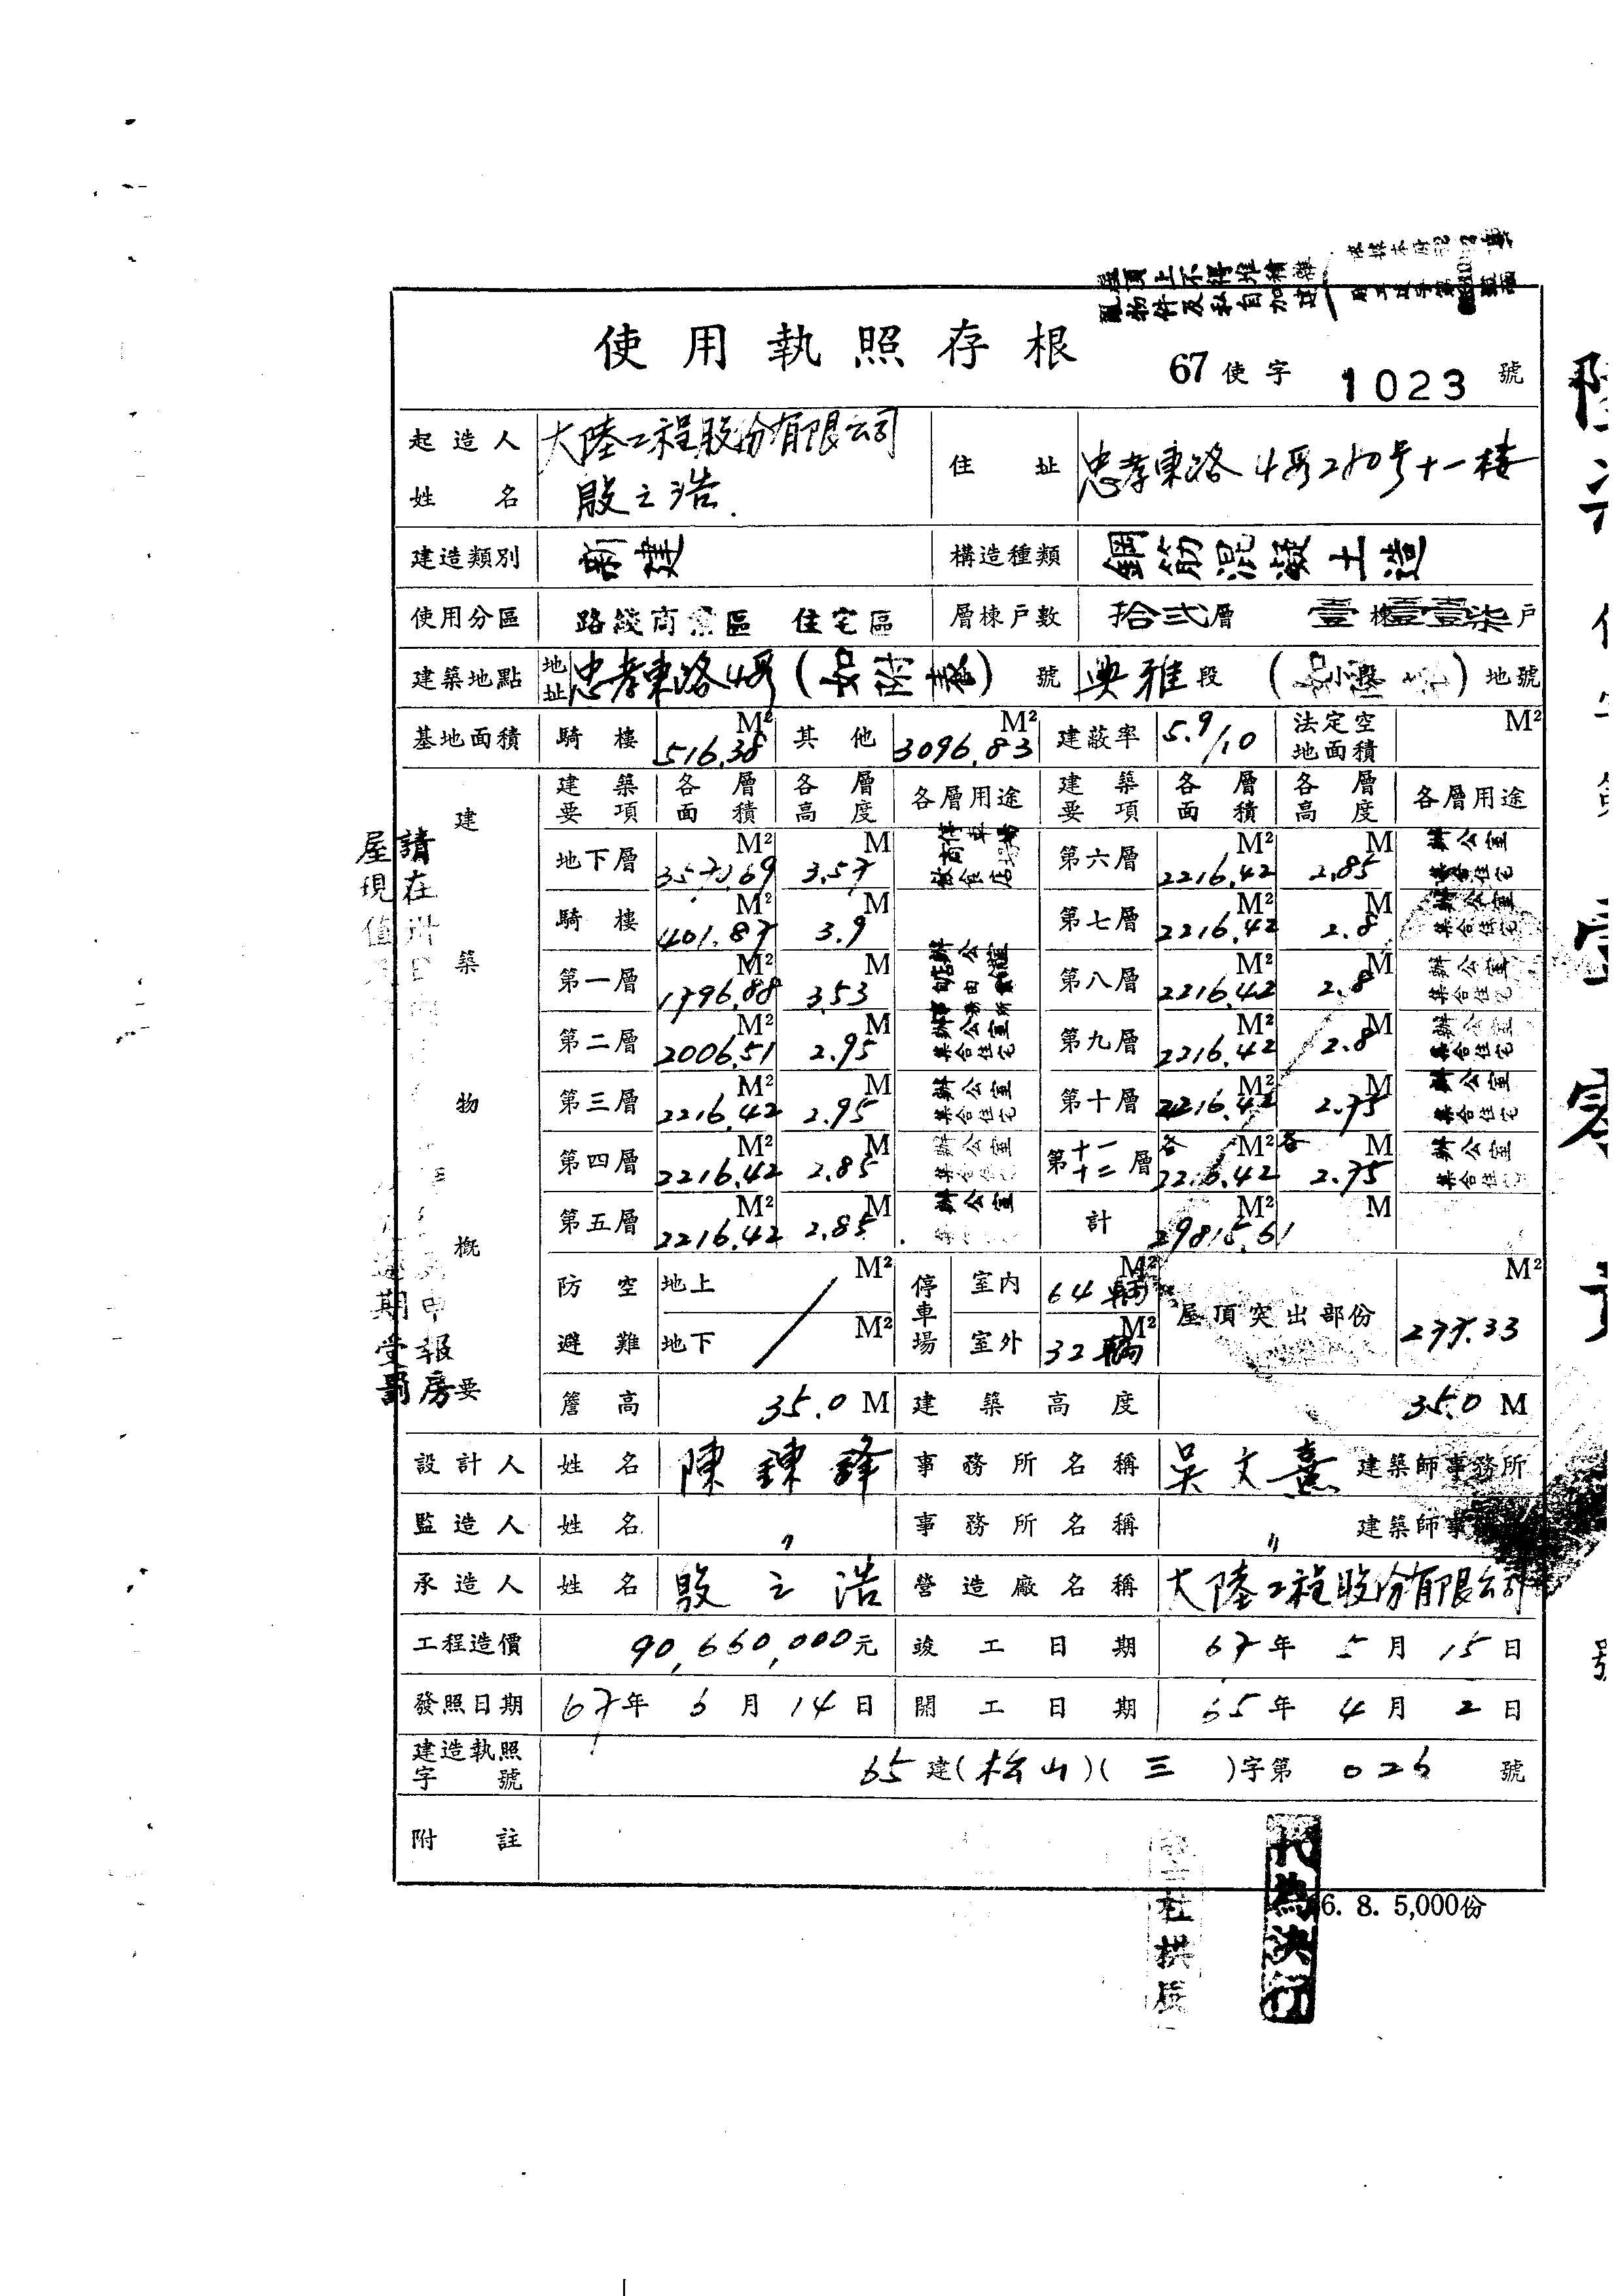 屋頂上不得堆積雜
亂物件及私自加建
使用執照存根
67使字 1023 號
起造人姓名 大陸工程股份有限公司 殷之浩 住址 忠孝東路4段280号十一楼
建造類別 新建 構造種類 鋼筋混凝土造
使用分區 路綫商業區 住宅區 層棟戶數 拾弍層 壹棟壹壹柒戶
建築地點 地址 忠孝東路4段 ( ) 號 興雅段 ( ) 地號
基地面積 騎樓 516.38 M² 其他 3096.83 M² 建蔽率 5.9/10 法定空地面積 M²
建築物概要 建築要項 各層面積 各層高度 各層用途 建築要項 各層面積 各層高度 各層用途
地下層 M² 3.57 M 停車場 商場 飲食店 第六層 2216.42 M² 2.85 M 辦公室 集合住宅
騎樓 401.87 M² 3.9 M 第七層 2216.42 M² 2.8 M 辦公室 集合住宅
第一層 1796.88 M² 3.53 M 第八層 2216.42 M² 2.8 M 辦公室 集合住宅
第二層 2006.51 M² 2.95 M 辦公室 集合住宅 第九層 2216.42 M² 2.8 M 辦公室 集合住宅
第三層 2216.42 M² 2.95 M 辦公室 集合住宅 第十層 2216.42 M² 2.75 M 辦公室 集合住宅
第四層 2216.42 M² 2.85 M 辦公室 集合住宅 第十一十二層 各 2216.42 M² 各 2.75 M 辦公室 集合住宅
第五層 2216.42 M² 2.85 M 辦公室 計 29815.61 M² M
防空避難 地上 M² 地下 M² 停車場 室內 64輛 M² 室外 32輛 M² 屋頂突出部份 277.33 M²
簷高 35.0 M 建築高度 35.0 M
設計人 姓名 陳錬鋒 事務所名稱 吳文熹 建築師事務所
監造人 姓名 〃 事務所名稱 〃 建築師事
承造人 姓名 殷之浩 營造廠名稱 大陸工程股份有限公司
工程造價 90,660,000元 竣工日期 67年5月15日
發照日期 67年6月14日 開工日期 65年4月2日
建造執照字號 65建(松山)(三)字第026號
附註
代為決行
6. 8. 5,000份